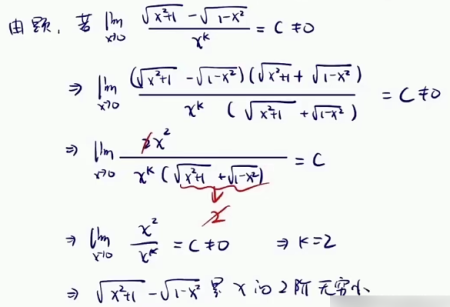 由题，若 lim x→0 (√(x²+1) - √(1-x²)) / x^k = C ≠ 0
⇒ lim x→0 (√(x²+1) - √(1-x²))(√(x²+1) + √(1-x²)) / x^k (√(x²+1) + √(1-x²)) = C ≠ 0
⇒ lim x→0 2x² / x^k (√(x²+1) + √(1-x²)) = C
2
⇒ lim x→0 x² / x^k = C ≠ 0 ⇒ k=2
⇒ √(x²+1) - √(1-x²) 是 x 的 2 阶无穷小